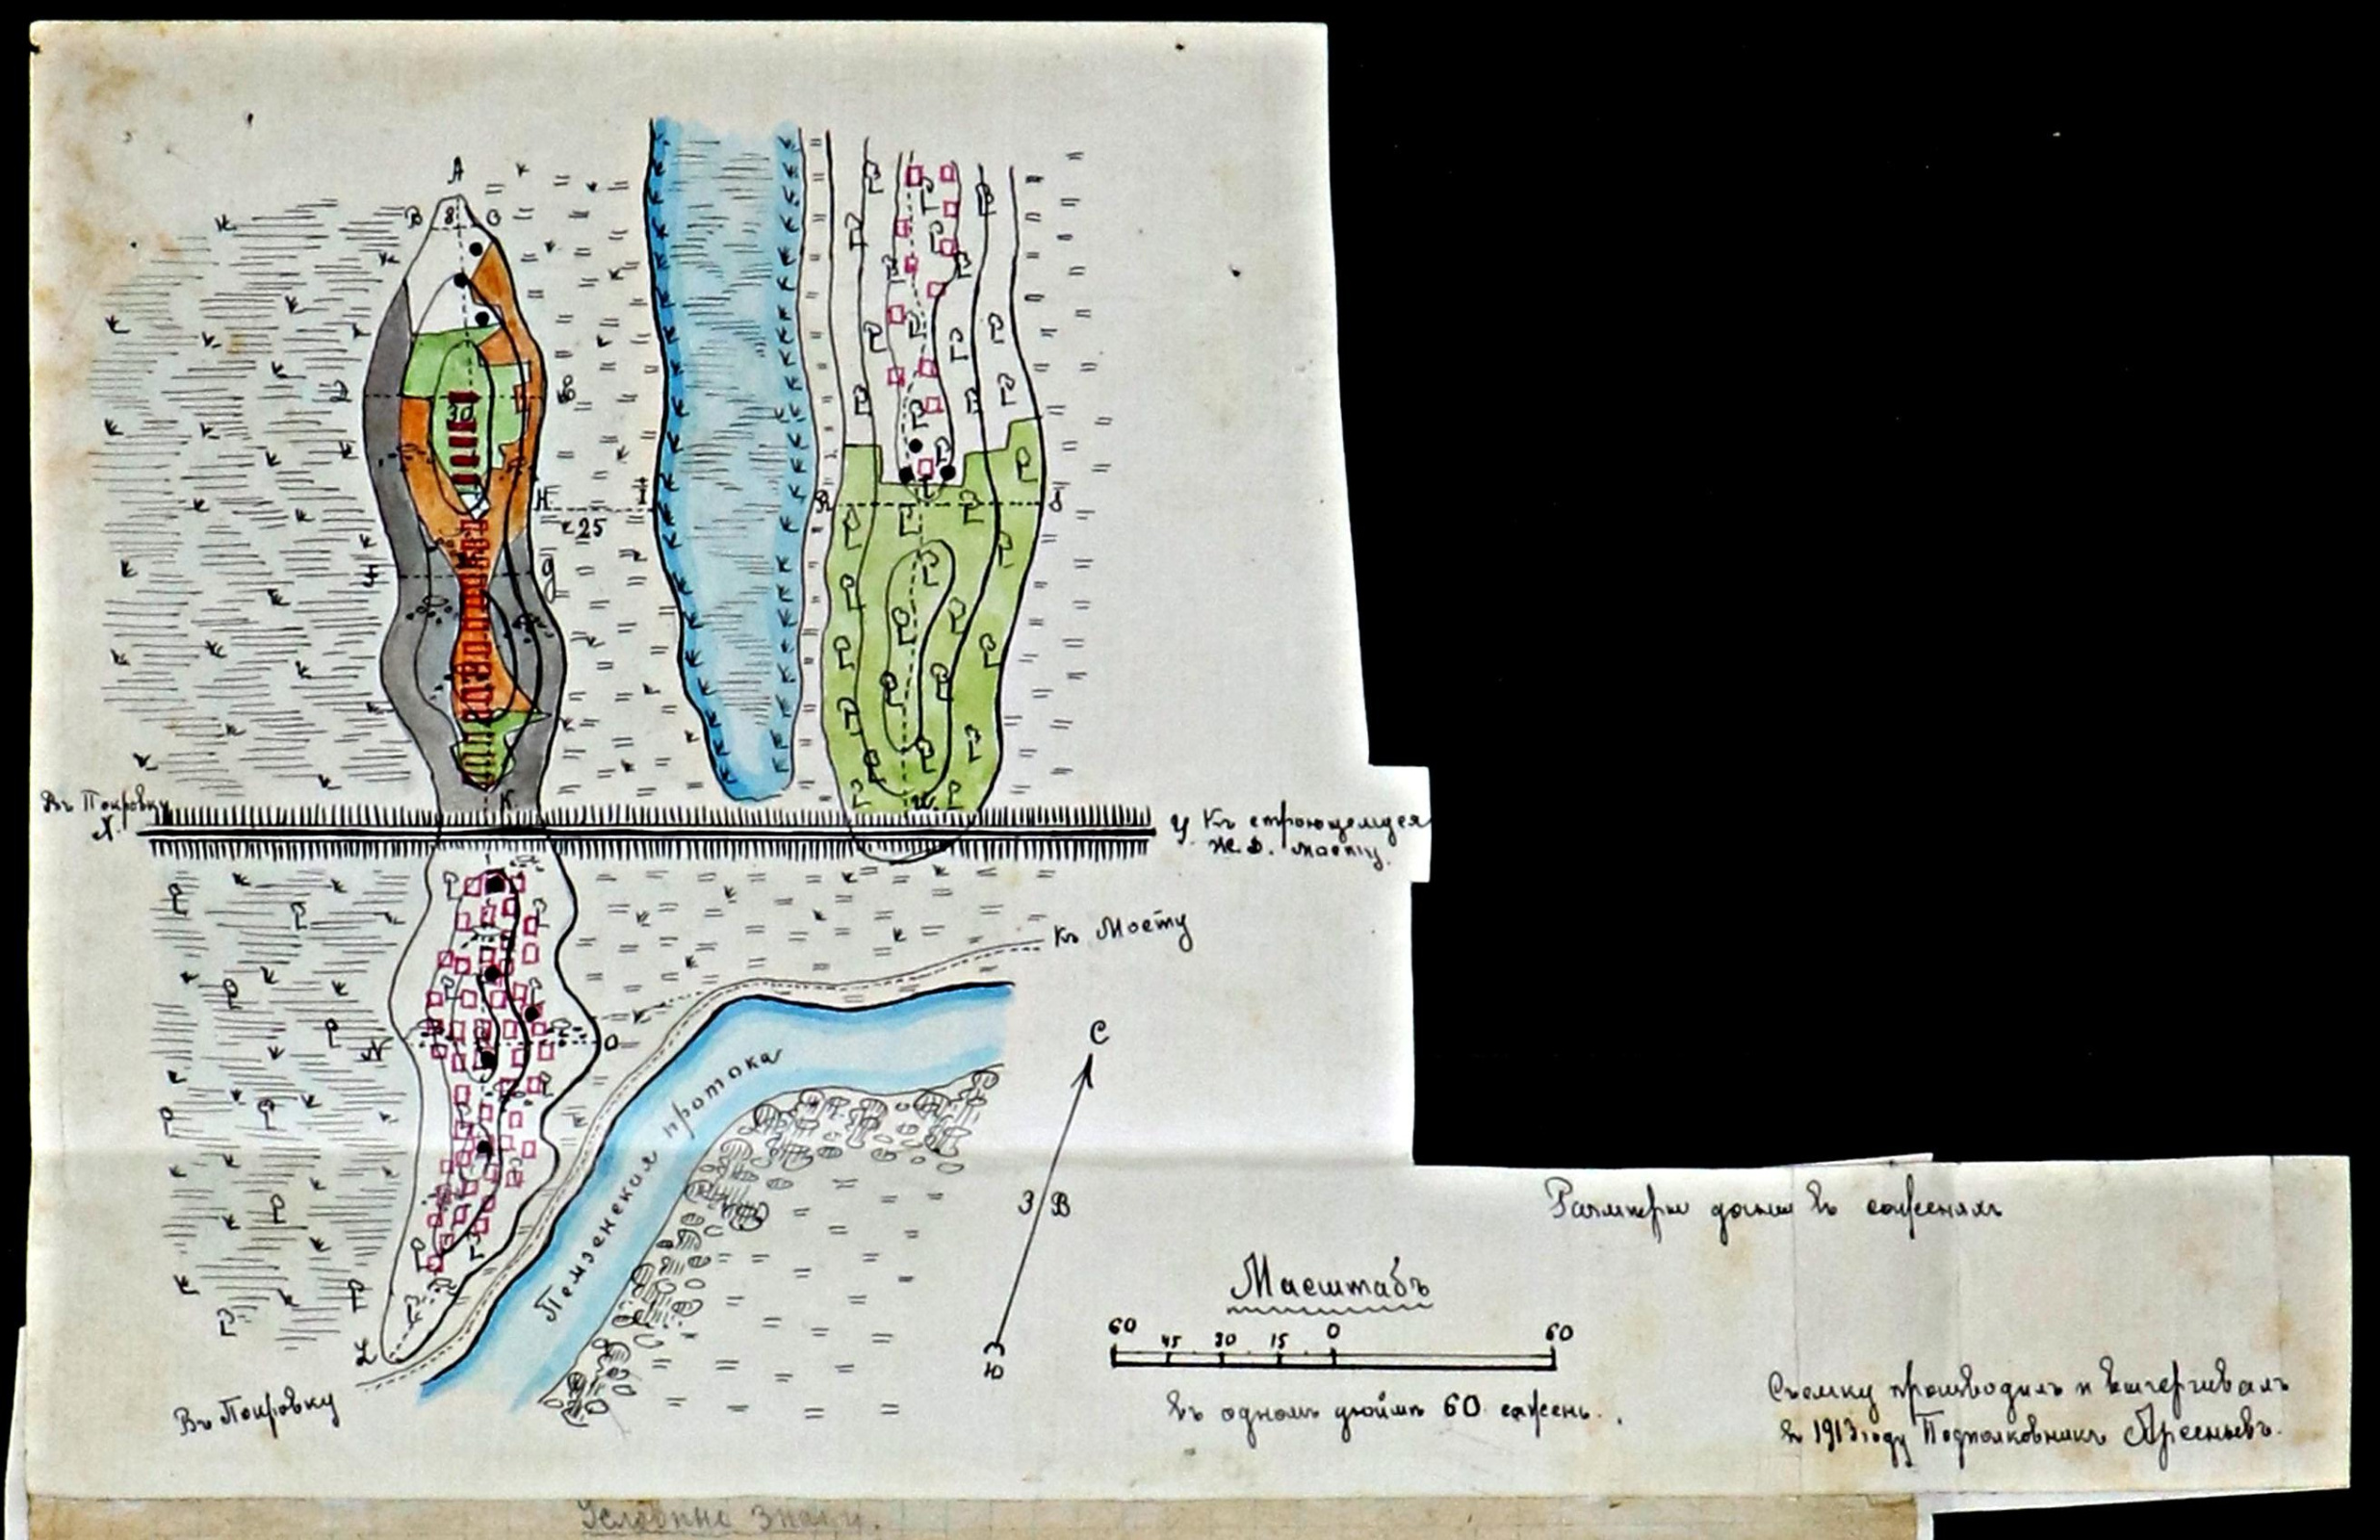 А
В 8 С
Д Е
30
Н
25
I
R S
F
g
К
М
Въ Покровку
Х.
У. Къ строющемуся
Ж. Д. мосту.
Къ Мосту
N O
Пемзенская протока
С
З В
Ю
L
Въ Покровку
Размѣры даны въ саженяхъ
Масштабъ
60 45 30 15 0 60
Въ одномъ дюймѣ 60 сажень.
Съемку производилъ и вычерчивалъ
въ 1913 году Подполковникъ Арсеньевъ.
Условные знаки.